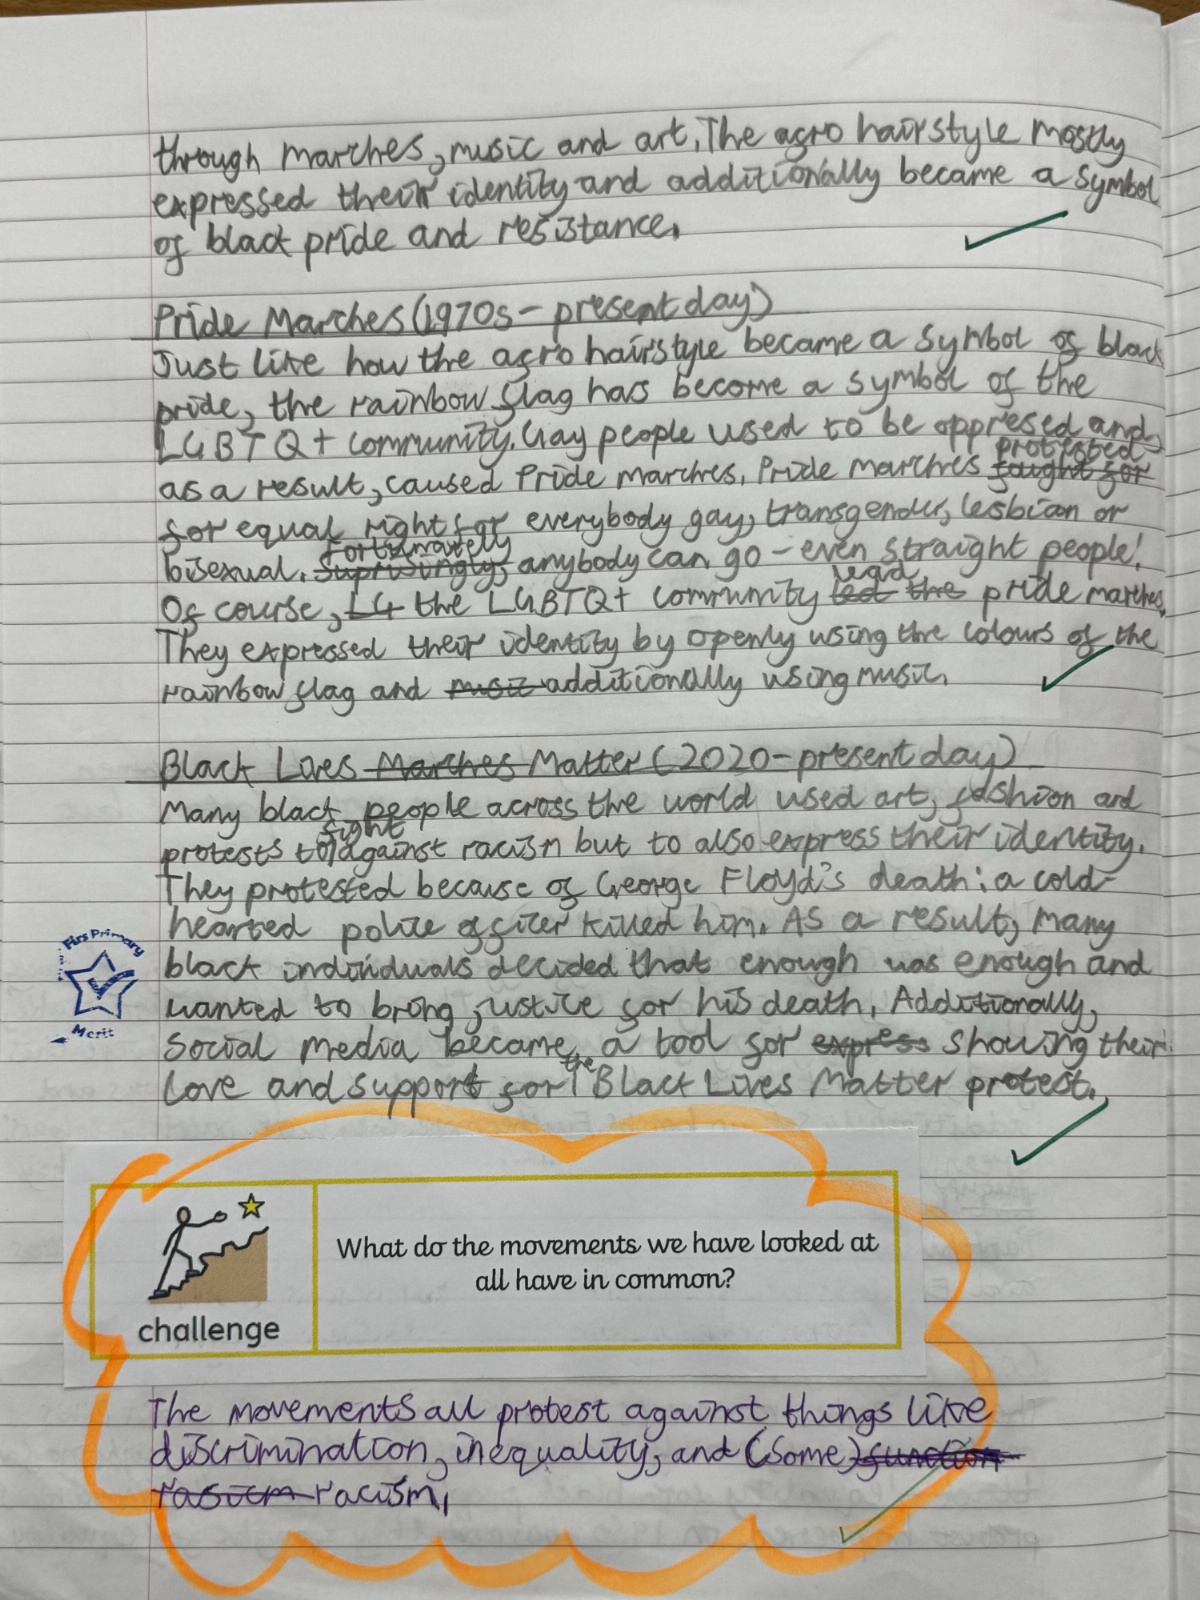 through marches, music and art. The afro hairstyle mostly
expressed their identity and additionally became a symbol
of black pride and resistance.
Pride Marches (1970s - present day)
Just like how the afro hairstyle became a symbol of black
pride, the rainbow flag has become a symbol of the
LGBTQ+ community. Gay people used to be oppresed and,
protested
as a result, caused Pride marches. Pride marches fought for
for equal right for everybody gay, transgender, lesbian or
fortunately
bisexual. Suprisingly, anybody can go - even straight people!
lead
Of course, LG the LGBTQ+ community led the pride marches.
They expressed their identity by openly using the colours of the
rainbow flag and music additionally using music.
Black Lives Marches Matter (2020 - present day)
Many black people across the world used art, fashion and
fight
protests to against racism but to also express their identity.
They protested because of George Floyd's death: a cold-
hearted police officer killed him. As a result, many
black individuals decided that enough was enough and
wanted to bring justice for his death. Additionally,
Social media became a tool for express showing their
the
love and support for Black Lives Matter protest.
Firs Primary
Merit
What do the movements we have looked at
all have in common?
challenge
The movements all protest against things like
discrimination, inequality, and (some) function
rasicm racism.